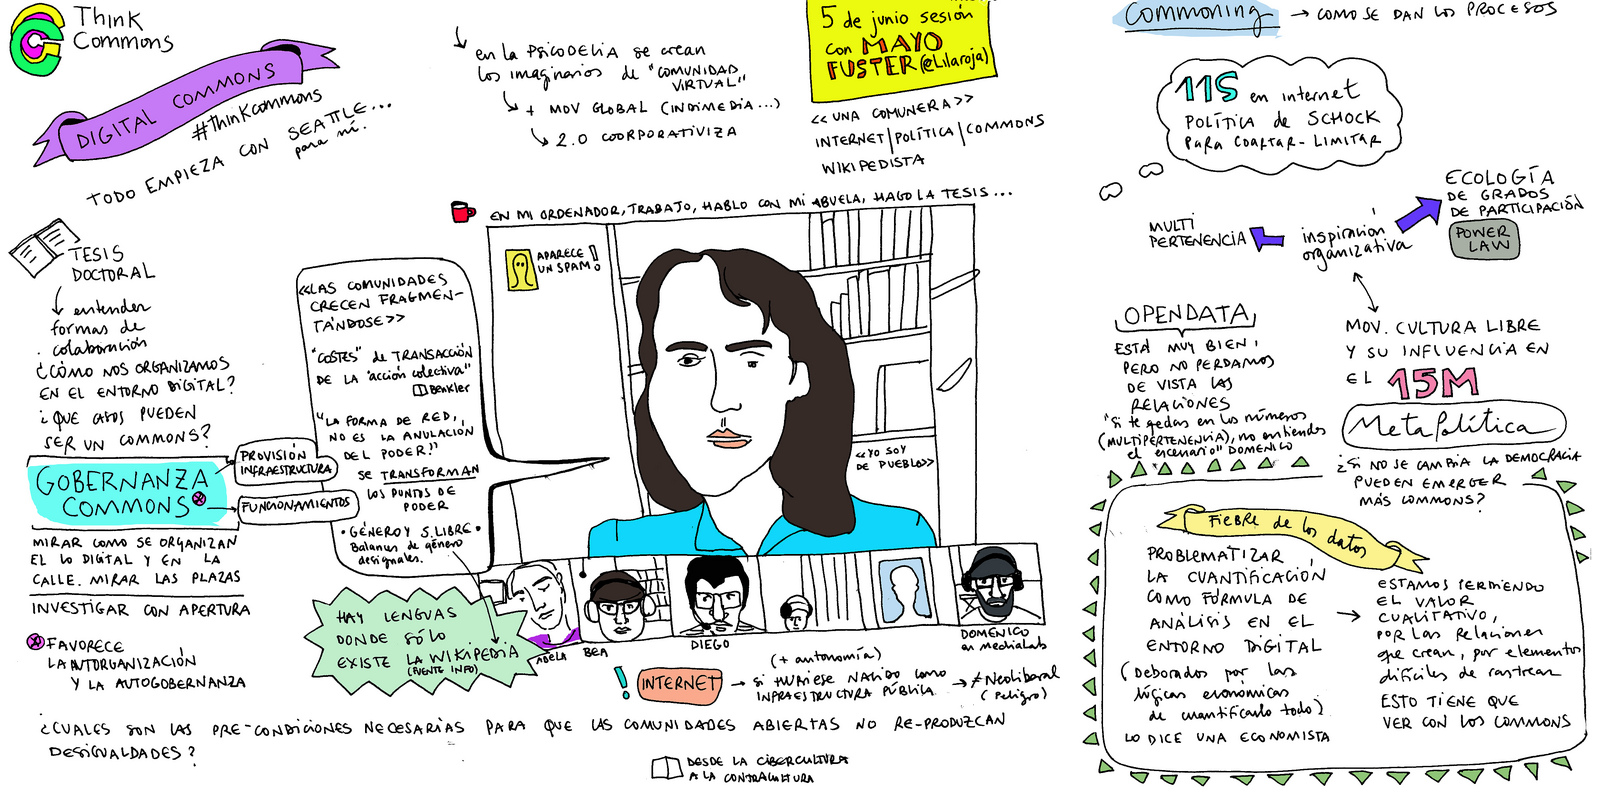 Think
Commons
DIGITAL COMMONS
#ThinKcommons
TODO EMPIEZA CON SEATTLE...
para mí.
en la PSICODELIA se crean
los imaginarios de "COMUNIDAD
VIRTUAL"
+ MOV GLOBAL (INDIMEDIA...)
2.0 COORPORATIVIZA
5 de junio sesión
con MAYO
FUSTER (@Lilaroja)
<<UNA COMUNERA>>
INTERNET|POLÍTICA|COMMONS
WIKIPEDISTA
EN MI ORDENADOR, TRABAJO, HABLO CON MI ABUELA, HAGO LA TESIS...
APARECE
UN SPAM!
<<YO SOY
DE PUEBLO>>
TESIS
DOCTORAL
entender
formas de
colaboración
¿CÓMO NOS ORGANIZAMOS
EN EL ENTORNO DIGITAL?
¿QUE CASOS PUEDEN
SER UN COMMONS?
GOBERNANZA
COMMONS
PROVISIÓN
INFRAESTRUCTURA
FUNCIONAMIENTOS
MIRAR COMO SE ORGANIZAN
EL LO DIGITAL Y EN LA
CALLE. MIRAR LAS PLAZAS
INVESTIGAR CON APERTURA
FAVORECE
LA AUTORGANIZACIÓN
Y LA AUTOGOBERNANZA
<<LAS COMUNIDADES
CRECEN FRAGMEN-
TÁNDOSE>>
"COSTES" de TRANSACCIÓN
DE LA "acción colectiva"
Benkler
"LA FORMA DE RED,
NO ES LA ANULACIÓN
DEL PODER!"
SE TRANSFORMAN
LOS PUNTOS DE
PODER
• GÉNERO Y S. LIBRE •
Balances de género
desiguales.
HAY LENGUAS
DONDE SÓLO
EXISTE LA WIKIPEDIA
(FUENTE INFO)
ADELA
BEA
DIEGO
DOMENICO
en medialab
! INTERNET
(+ autonomía)
SI HUBIESE NACIDO como
INFRAESTRUCTURA PÚBLICA
≠ Neoliberal
(Peligro)
¿CUALES SON LAS PRE-CONDICIONES NECESARIAS PARA QUE LAS COMUNIDADES ABIERTAS NO RE-PRODUZCAN
DESIGUALDADES?
DESDE LA CIBERCULTURA
A LA CONTRACULTURA
Commoning → COMO SE DAN LOS PROCESOS
11S en internet
POLÍTICA de SCHOCK
PARA COARTAR-LIMITAR
MULTI
PERTENENCIA
inspiración
organizativa
ECOLOGÍA
DE GRADOS
DE PARTICIPACIÓN
POWER
LAW
OPENDATA
ESTÁ MUY BIEN,
PERO NO PERDAMOS
DE VISTA LAS
RELACIONES
"Si te quedas en los números
(MULTIPERTENENCIA), no entiendes
el escenario" DOMENICO
MOV. CULTURA LIBRE
Y SU INFLUENCIA EN
EL 15M
MetaPolítica
¿SI NO SE CAMBIA LA DEMOCRACIA
PUEDEN EMERGER
MÁS COMMONS?
FIEBRE de los datos
PROBLEMATIZAR
LA CUANTIFICACIÓN
COMO FÓRMULA DE
ANÁLISIS EN EL
ENTORNO DIGITAL
(Deborados por las
lógicas económicas
de cuantificarlo todo)
LO DICE UNA ECONOMISTA
ESTAMOS PERDIENDO
EL VALOR
CUALITATIVO,
POR LAS Relaciones
que crean, por elementos
difíciles de rastrear
ESTO TIENE QUE
VER CON LOS COMMONS